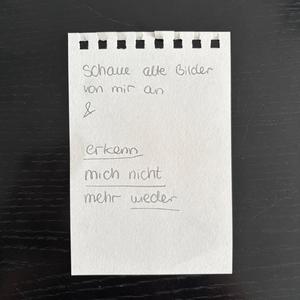 schaue alte Bilder
von mir an
&
erkenn
mich nicht
mehr wieder